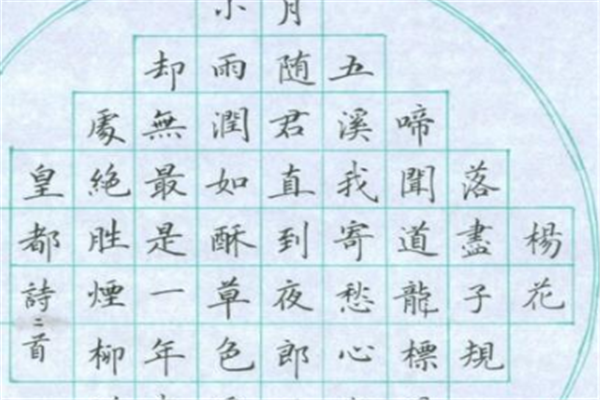 楊花
落盡子規
啼聞道龍標
五溪我寄愁心
月随君直到夜郎
小雨潤如酥草色
却無最是一年
處絕胜煙柳
皇都
詩二首